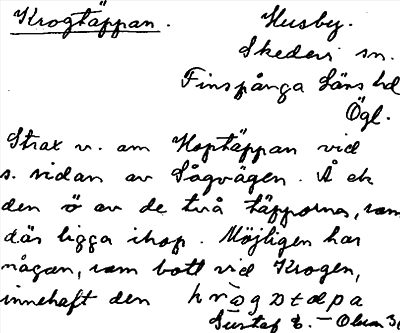 Krogtäppan. Husby.
Skedevi sn.
Finspånga läns hd
Ögl.
Strax v. om Hoptäppan vid
s. sidan av Sågvägen. Å ek
den ö av de två täpporna, som
där ligga ihop. Möjligen har
någon, som bott vid Krogen,
innehaft den
Gustaf E. - Olsson